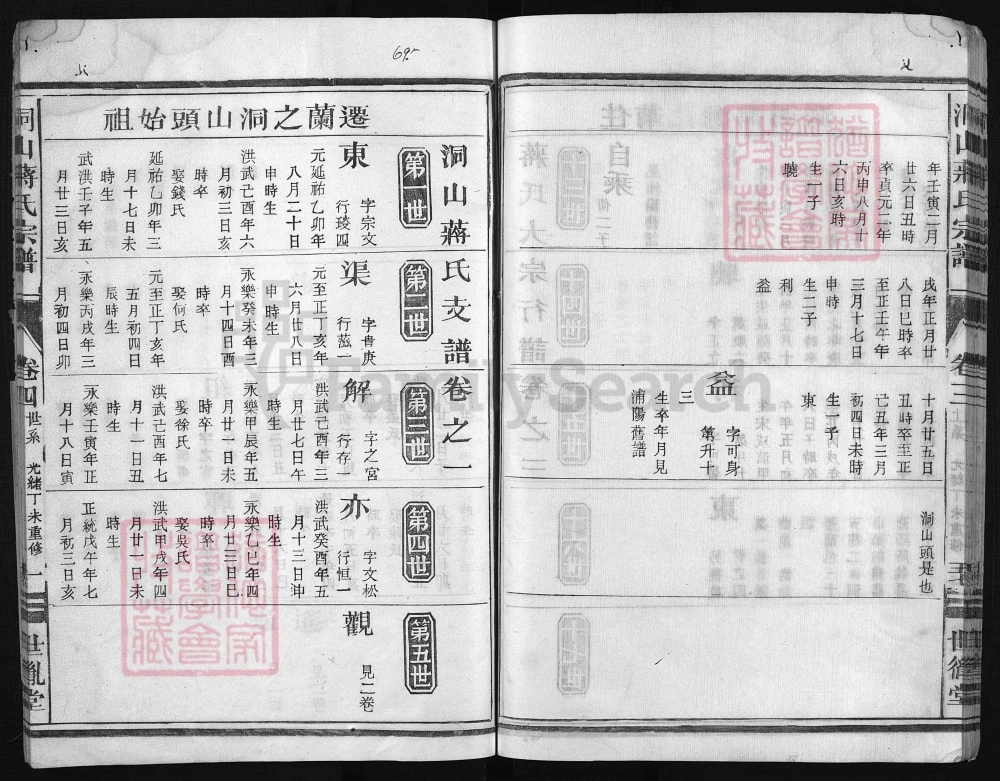 洞山蔣氏宗譜
卷三
年壬寅二月
廿六日丑時
卒貞元二年
丙申八月十
六日亥時
生一子
曉
戌年正月廿
八日巳時卒
至正壬午年
三月十七日
申時
生二子
利
益
十月廿五日
丑時卒至正
己丑年三月
初四日未時
生一子
東
益
字可身
第升十
三
生卒年月見
浦陽舊譜
洞山頭是也
洞山蔣氏支譜卷之一
遷蘭之洞山頭始祖
第一世
東
字宗文
行琰四
元延祐乙卯年
八月二十日
申時生
洪武己酉年六
月初三日亥
時卒
娶錢氏
延祐乙卯年三
月十七日未
時生
武洪壬子年五
月廿三日亥
第二世
渠
字書庚
行茲一
元至正丁亥年
六月廿八日
申時生
永樂癸未年三
月十四日酉
時卒
娶何氏
元至正丁亥年
五月初四日
辰時生
永樂丙戌年三
月初四日卯
第三世
解
字之宮
行存一
洪武己酉年三
月廿七日午
時生
永樂甲辰年五
月廿一日未
時卒
娶徐氏
洪武己酉年七
月十一日丑
時生
永樂壬寅年正
月十八日寅
第四世
亦
字文松
行恒一
洪武癸酉年五
月十三日沖
時生
永樂乙巳年四
月廿三日巳
時卒
娶吳氏
洪武甲戌年四
月廿一日未
時生
正統戊午年七
月初三日亥
第五世
觀
見二卷
洞山蔣氏宗譜
卷四
世系
光緒丁未重修
一
世胤堂
69
FamilySearch